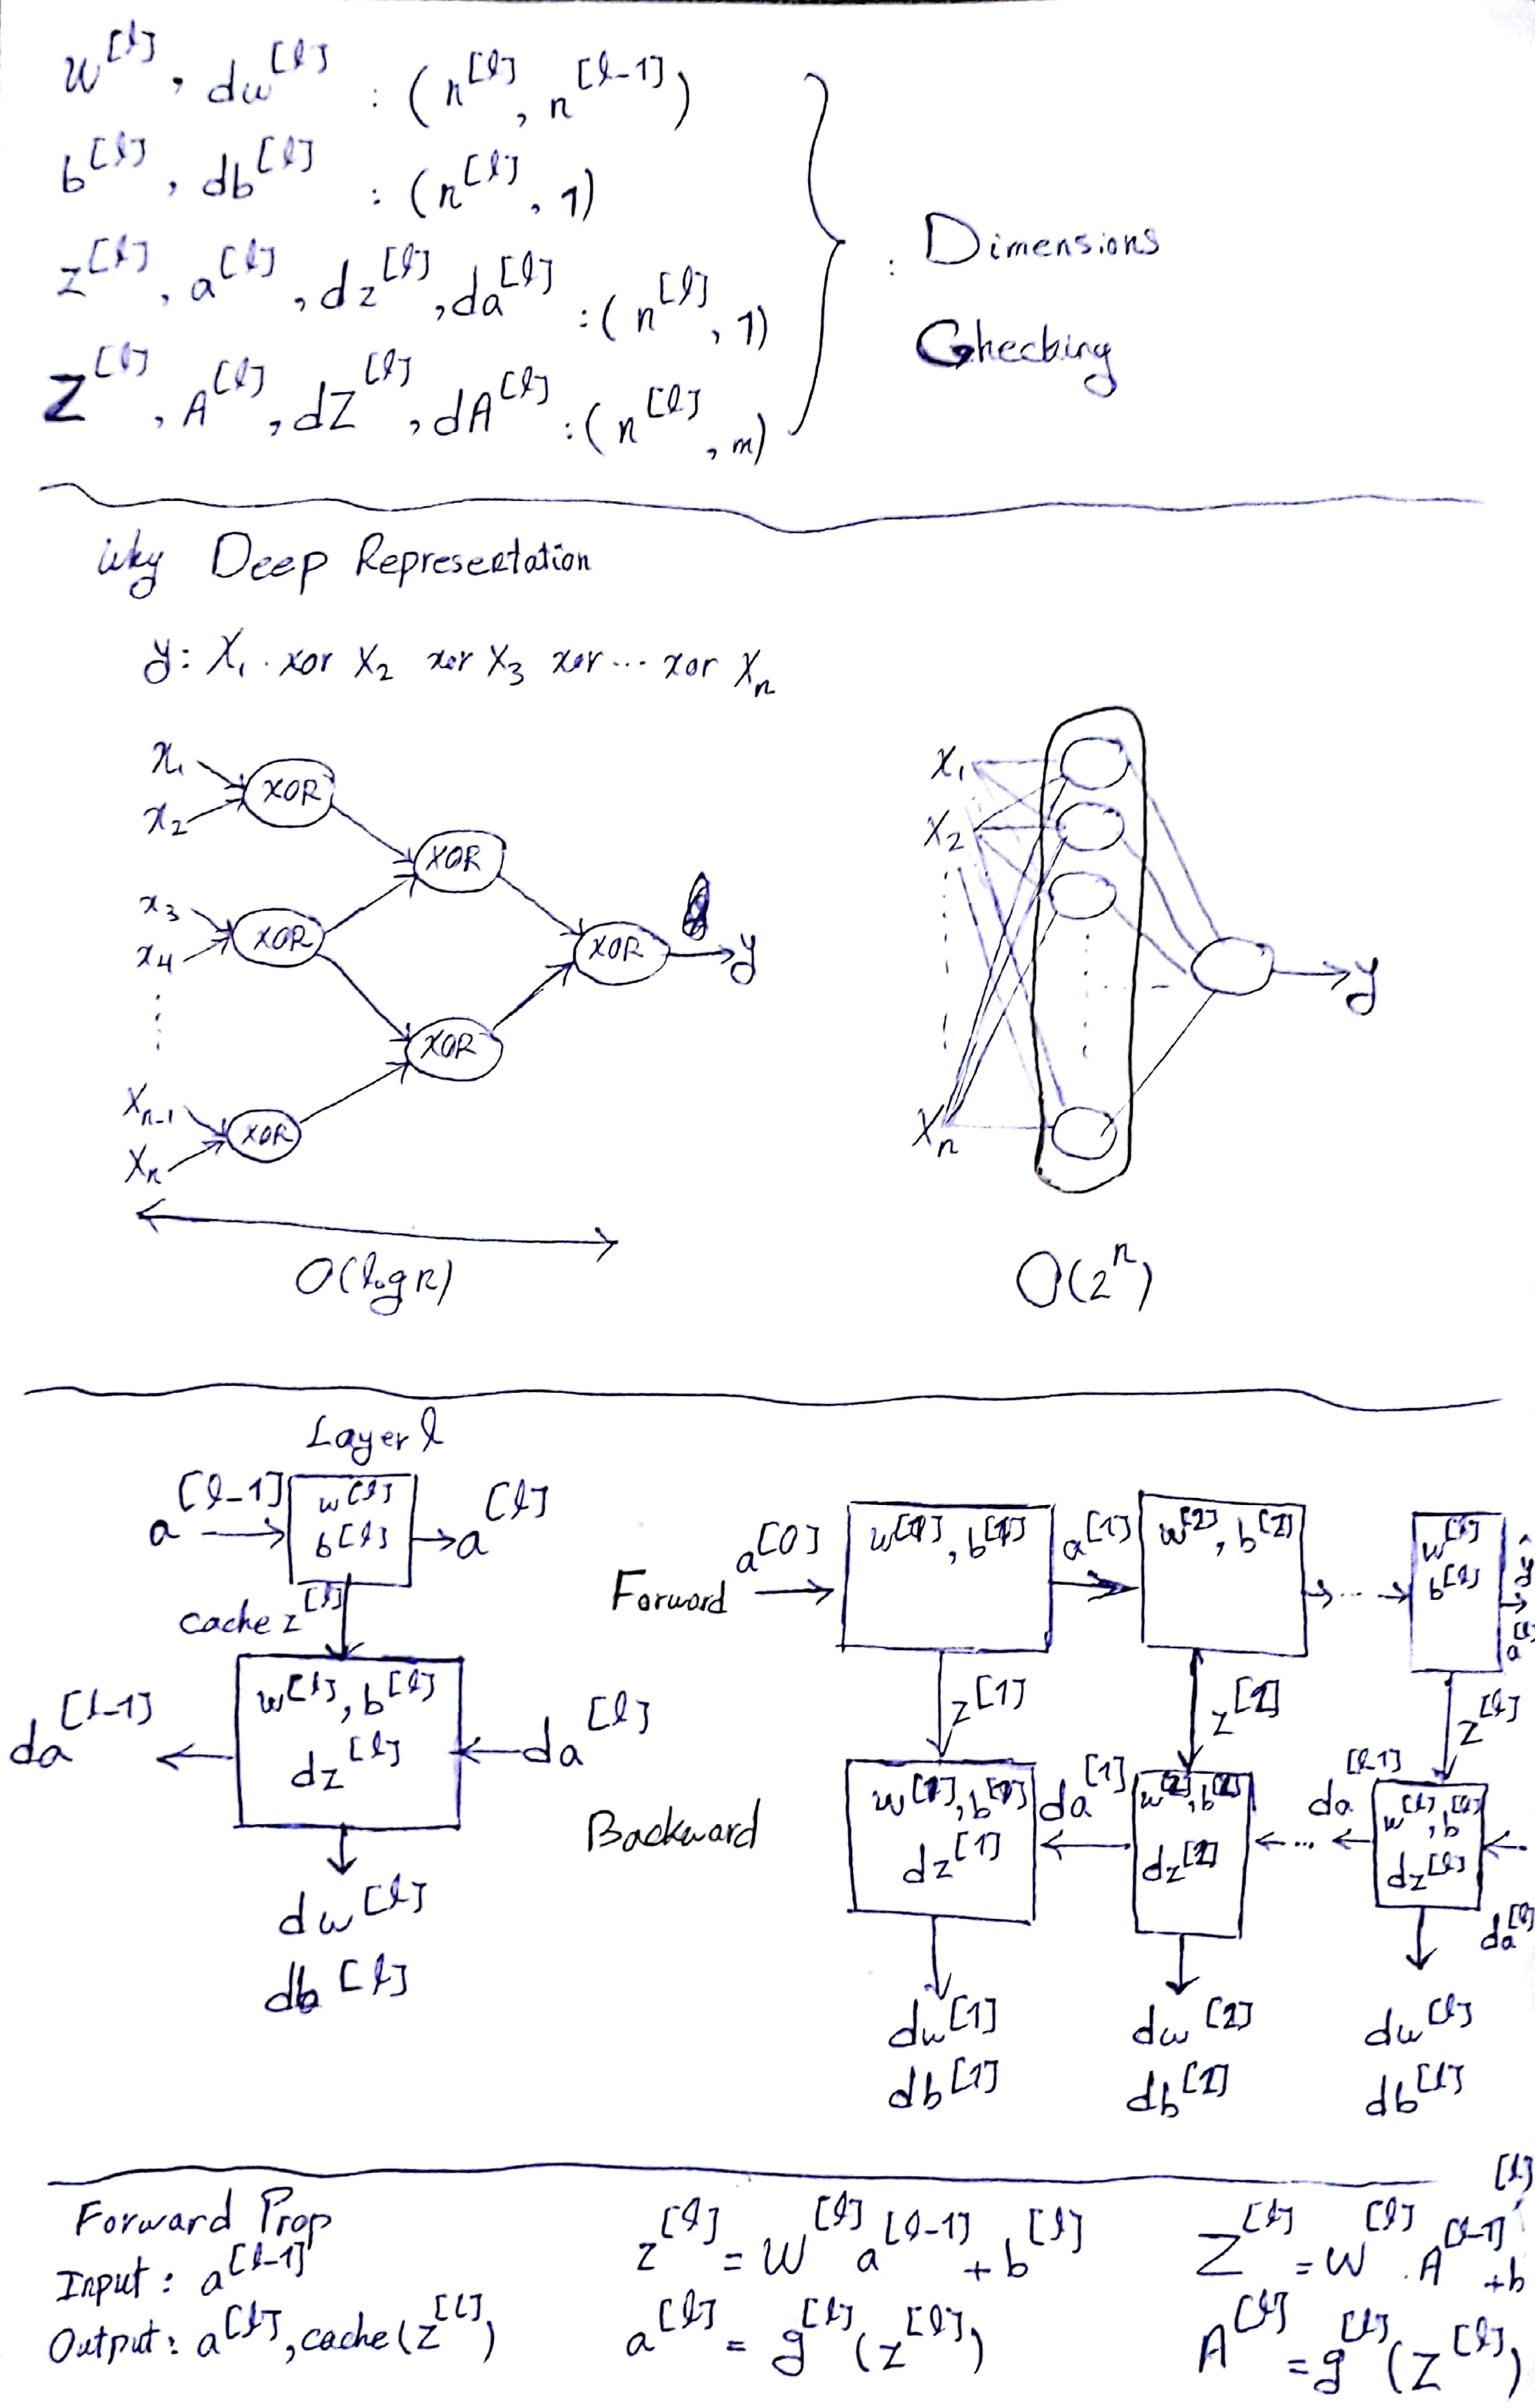 w^[l], dw^[l] : (n^[l], n^[l-1])
b^[l], db^[l] : (n^[l], 1)
z^[l], a^[l], dz^[l], da^[l] : (n^[l], 1)
Z^[l], A^[l], dZ^[l], dA^[l] : (n^[l], m)
: Dimensions
Checking
why Deep Representation
y: X₁ xor X₂ xor X₃ xor ... xor Xₙ
x₁
x₂
XOR
XOR
x₃
x₄
XOR
XOR
y
XOR
Xₙ₋₁
Xₙ
XOR
O(log n)
X₁
X₂
Xₙ
y
O(2ⁿ)
Layer l
a^[l-1]
w^[l]
b^[l]
a^[l]
cache z^[l]
da^[l-1]
w^[l], b^[l]
dz^[l]
da^[l]
dw^[l]
db^[l]
Forward
a^[0]
w^[1], b^[1]
a^[1]
w^[2], b^[2]
...
w^[l]
b^[l]
ŷ
a^[l]
z^[1]
z^[2]
z^[l]
Backward
w^[1], b^[1]
dz^[1]
da^[1]
w^[2], b^[2]
dz^[2]
...
da^[l-1]
w^[l], b^[l]
dz^[l]
da^[l]
dw^[1]
db^[1]
dw^[2]
db^[2]
dw^[l]
db^[l]
Forward Prop
Input: a^[l-1]
Output: a^[l], cache(z^[l])
z^[l] = W^[l] a^[l-1] + b^[l]
a^[l] = g^[l](z^[l])
Z^[l] = W^[l] . A^[l-1] + b^[l]
A^[l] = g^[l](Z^[l])